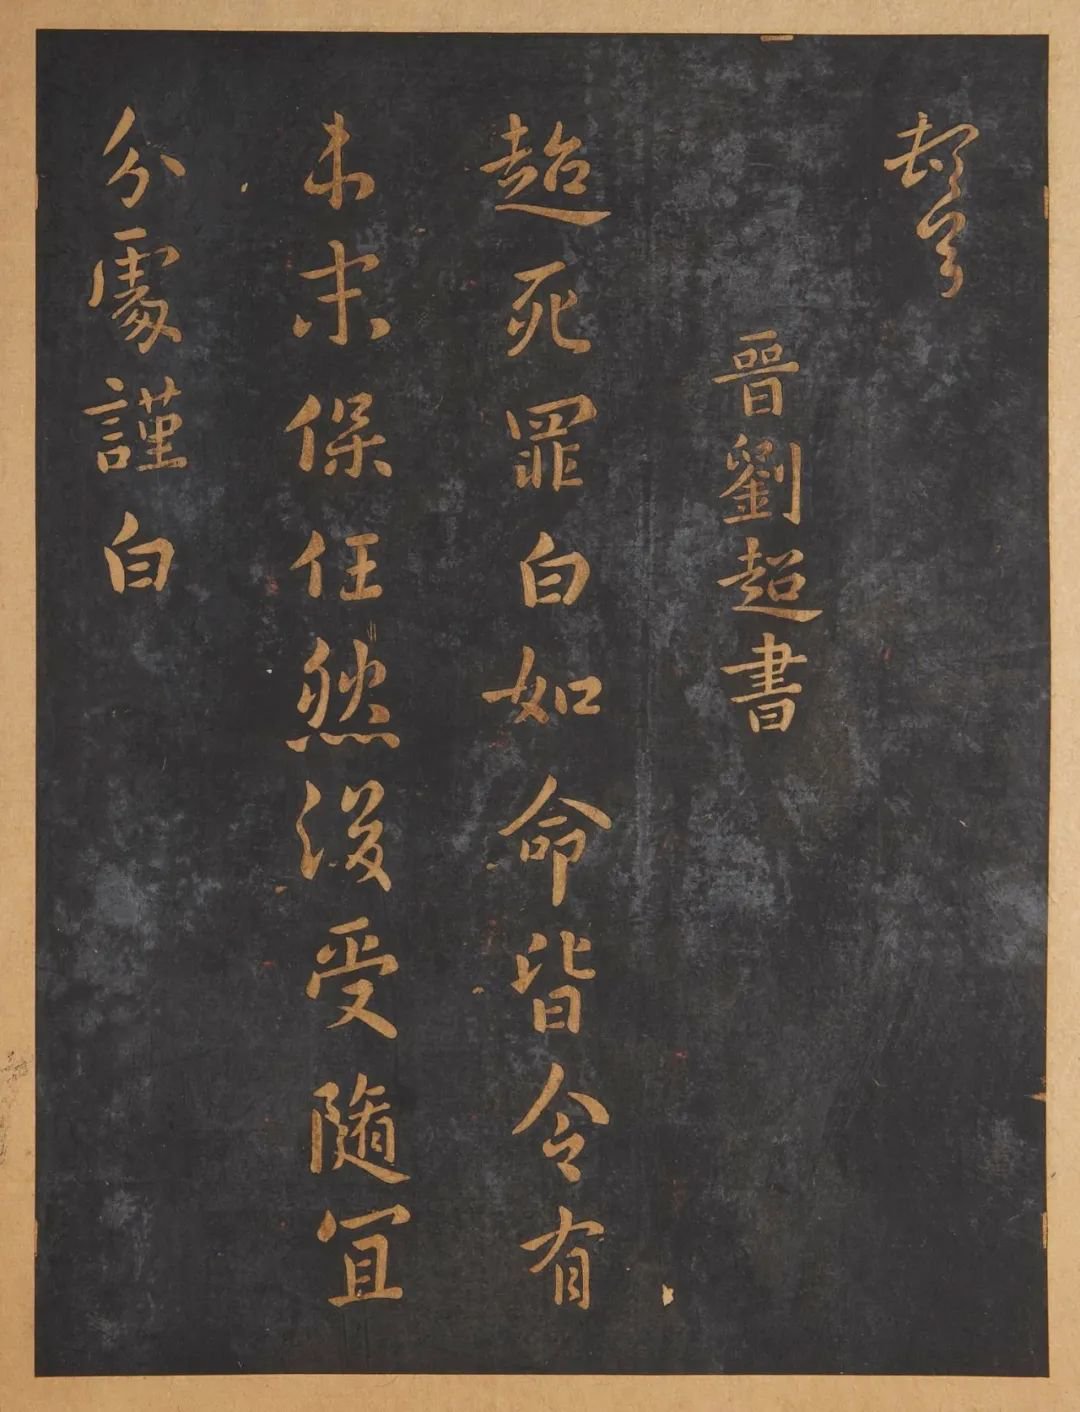 頓首
晉劉超書
超死罪白如命皆令有
本末保任然後受隨宜
分處謹白